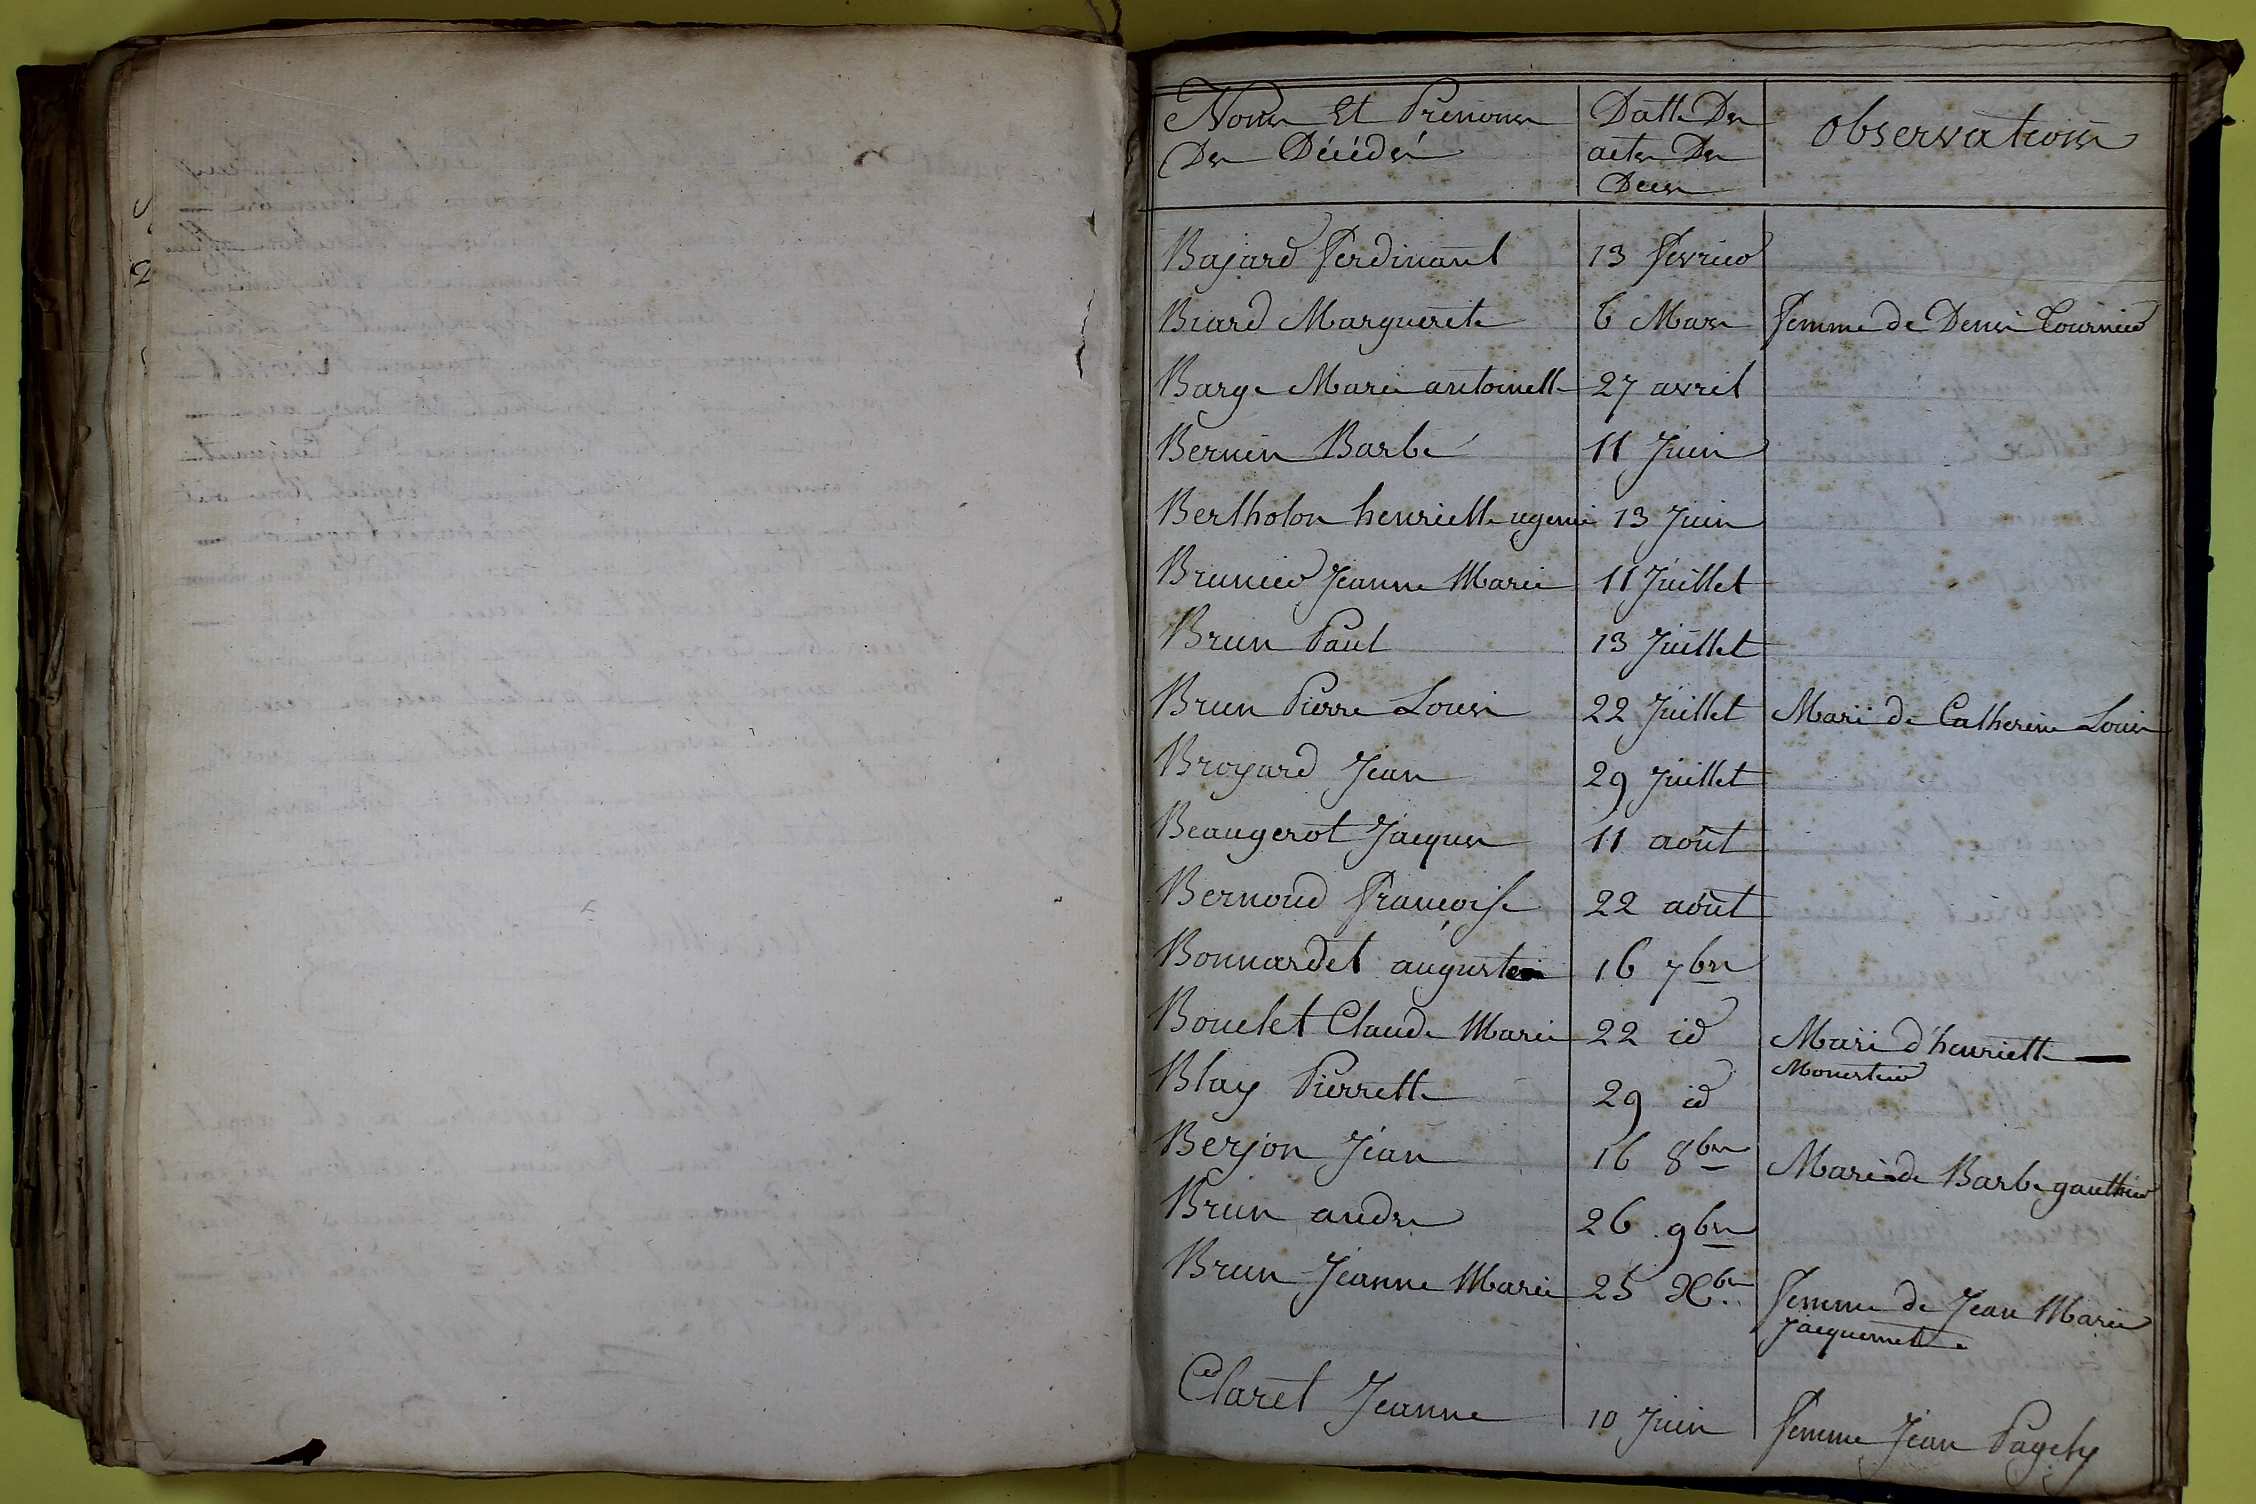 Noms Et Prénoms
Des Décédés
Datte Des
actes Des
Deces
Observations
Bajard Ferdinant 13 fevrier
Biard Marguerete 6 Mars femme de Denis Tournier
Barge Marie antoinette 27 avril
Bernin Barbe 11 Juin
Bertholon henriette ugenie 13 Juin
Brunier Jeanne Marie 11 Juillet
Brun Paul 13 Juillet
Brun Pierre Louis 22 Juillet Mari de Catherine Louis
Broyard Jean 29 Juillet
Beaugerot Jacques 11 août
Bernoud françoise 22 août
Bonnardel augustin 16 7bre
Bouclet Claude Marie 22 id Mari d'henriette
Monestier
Blay Pierrette 29 id
Berjon Jean 16 8bre Mari de Barbe gauthier
Brun andre 26 9bre
Brun Jeanne Marie 25 Xbre femme de Jean Marie
Jacquemet
Claret Jeanne 10 Juin femme Jean